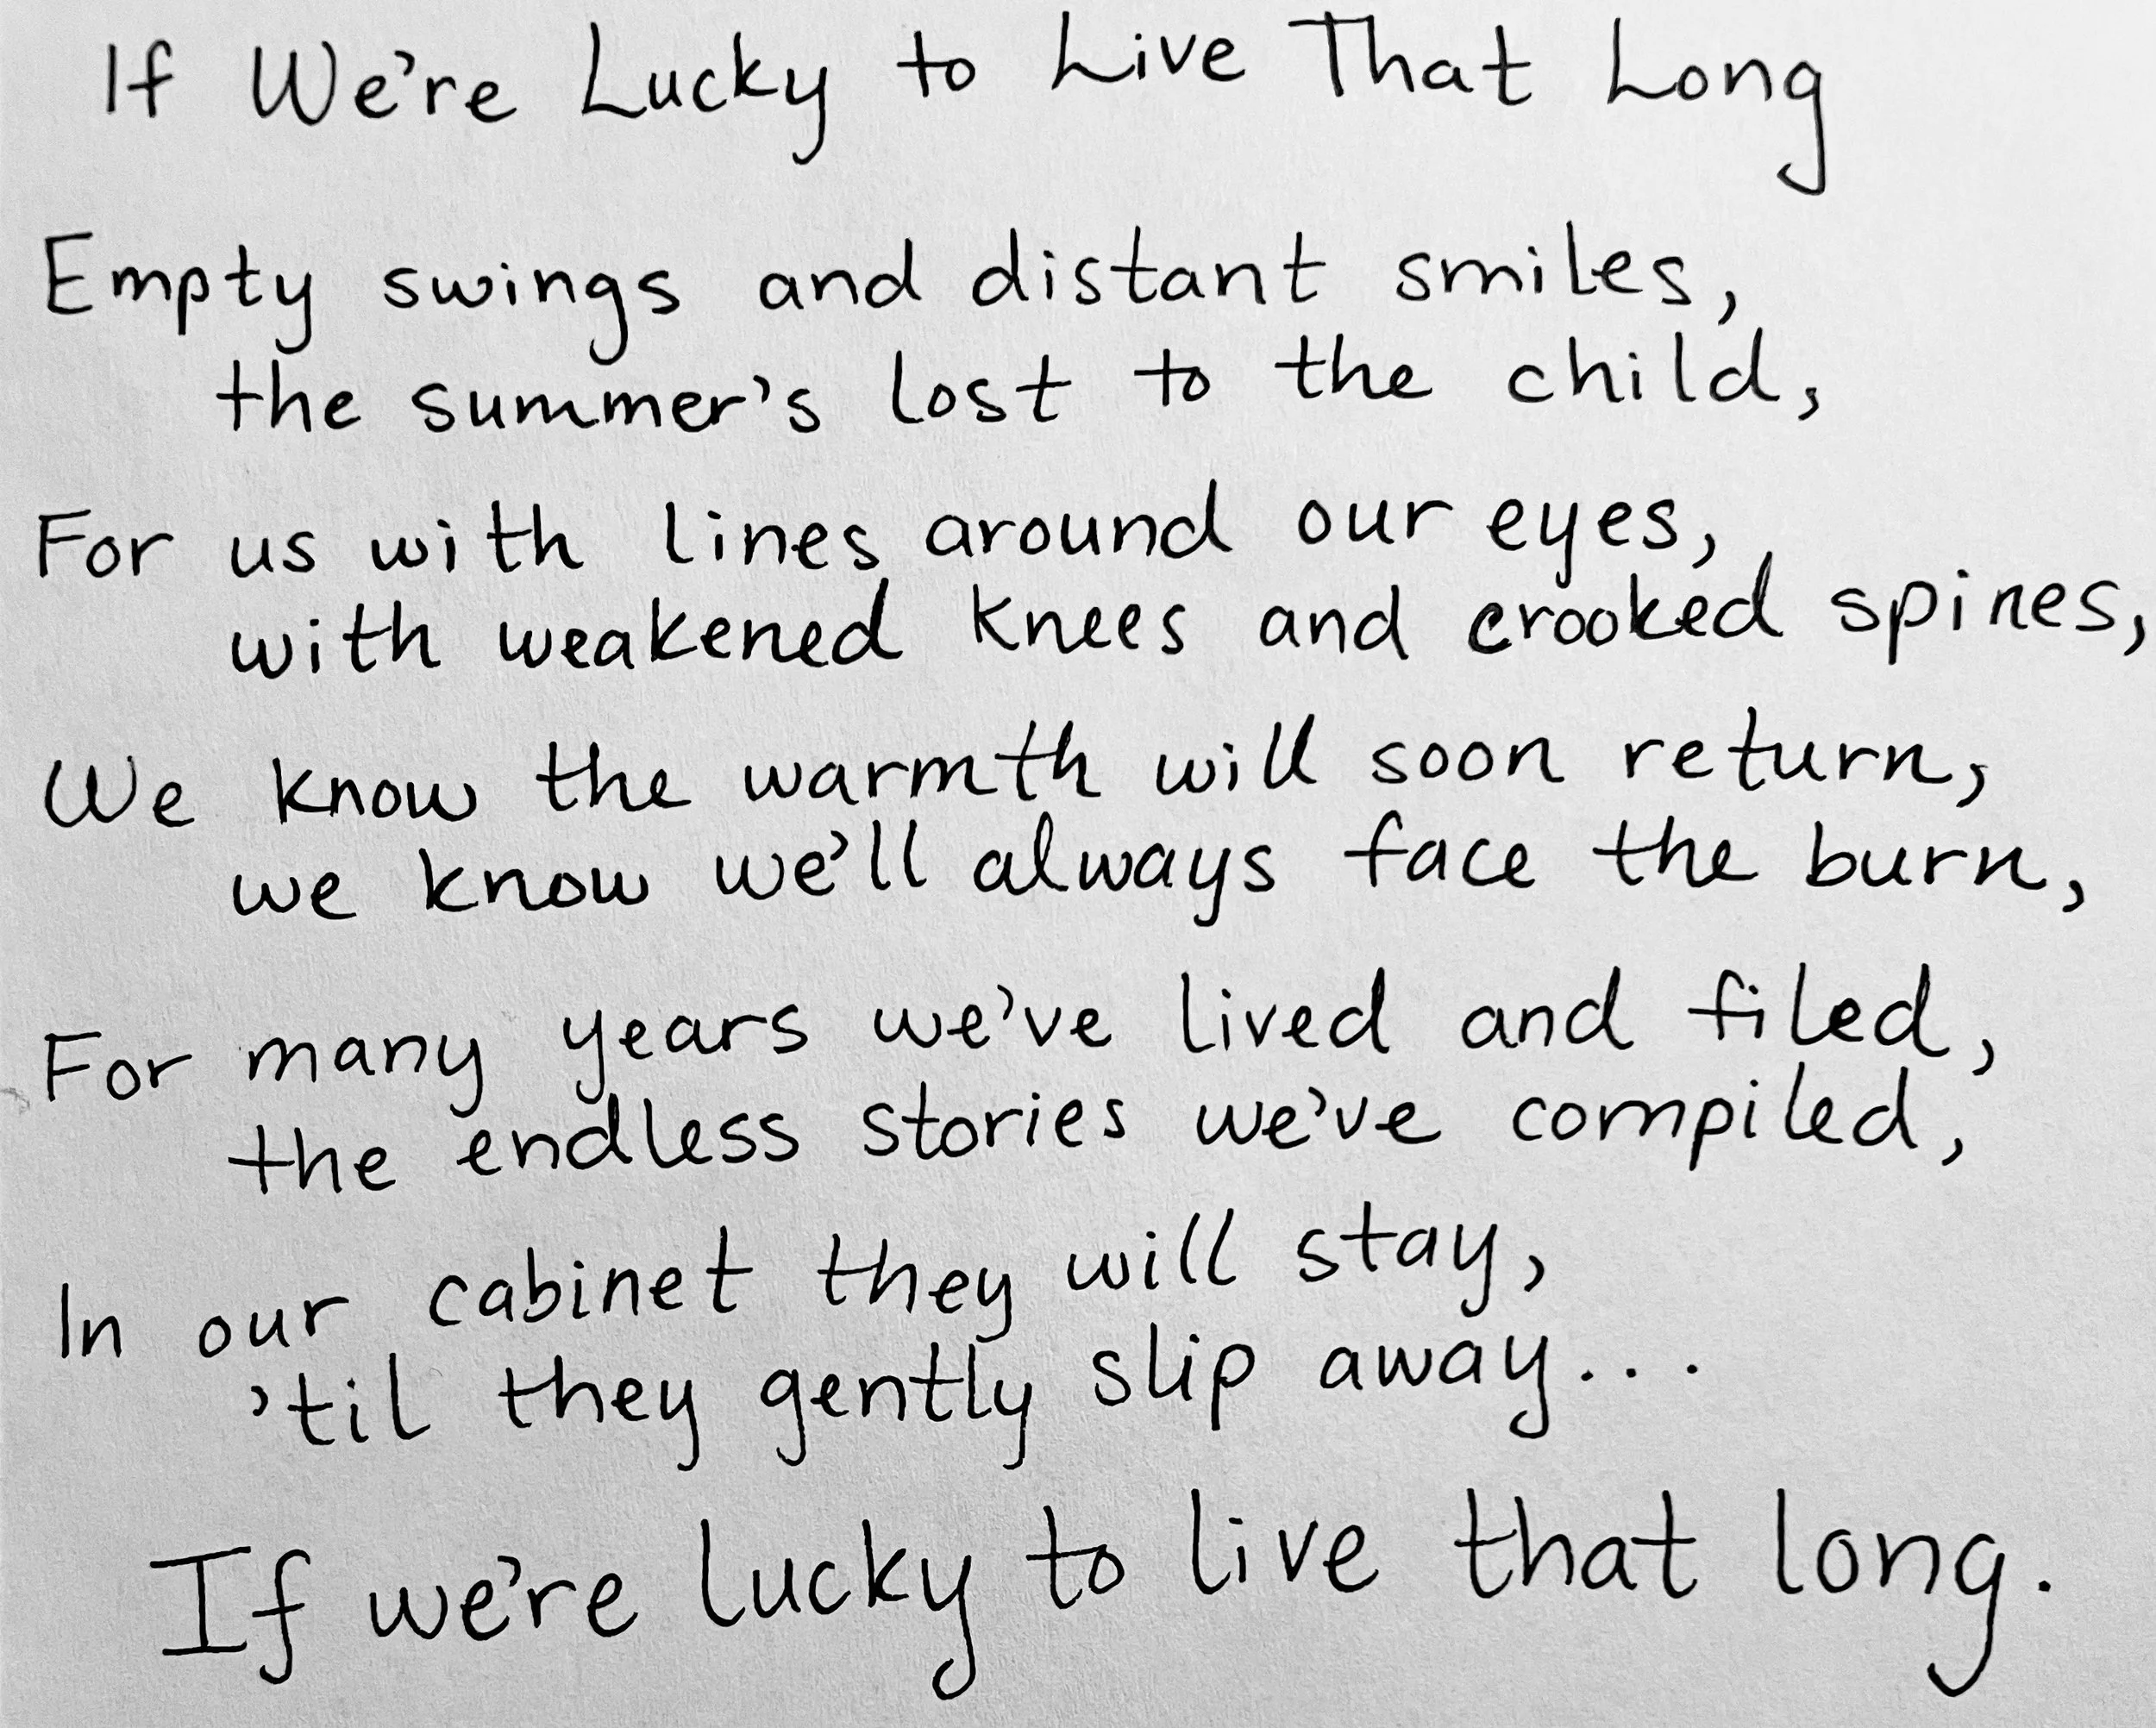 If We're Lucky to Live That Long
Empty swings and distant smiles,
the summer's lost to the child,
For us with lines around our eyes,
with weakened knees and crooked spines,
We know the warmth will soon return,
we know we'll always face the burn,
For many years we've lived and filed,
the endless stories we've compiled,
In our cabinet they will stay,
'til they gently slip away...
If we're lucky to live that long.